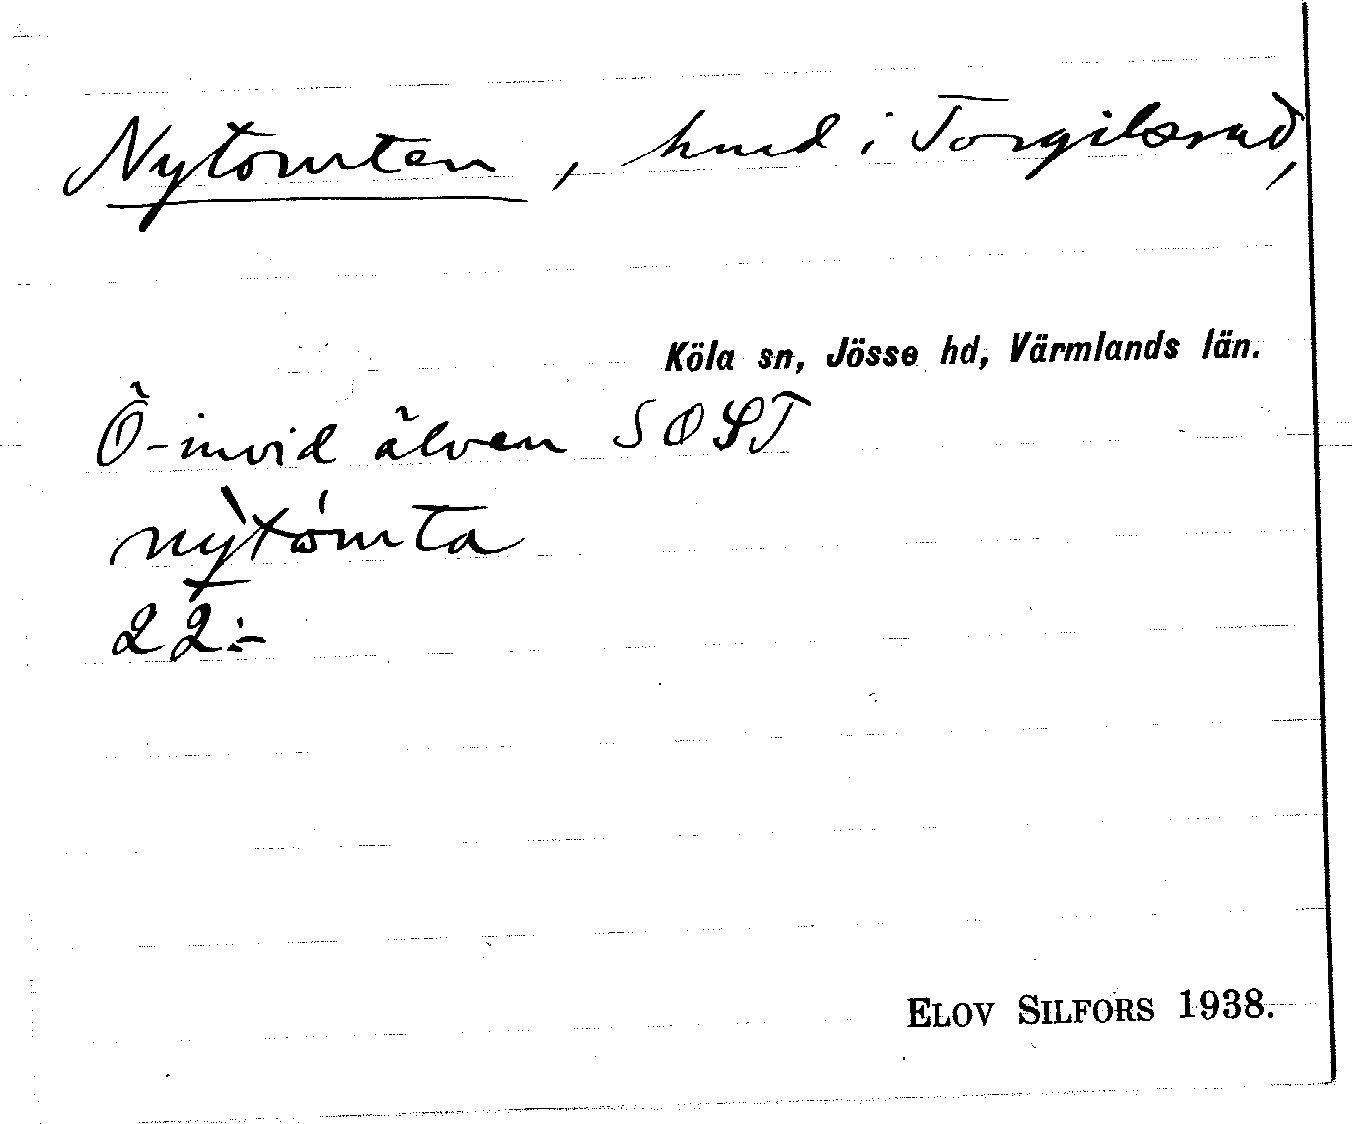 Nytomten, hmd i Torgilsrud,
Köla sn, Jösse hd, Värmlands län.
Ö-invid älven
nỳtómta
22:-
ELOV SILFORS 1938.